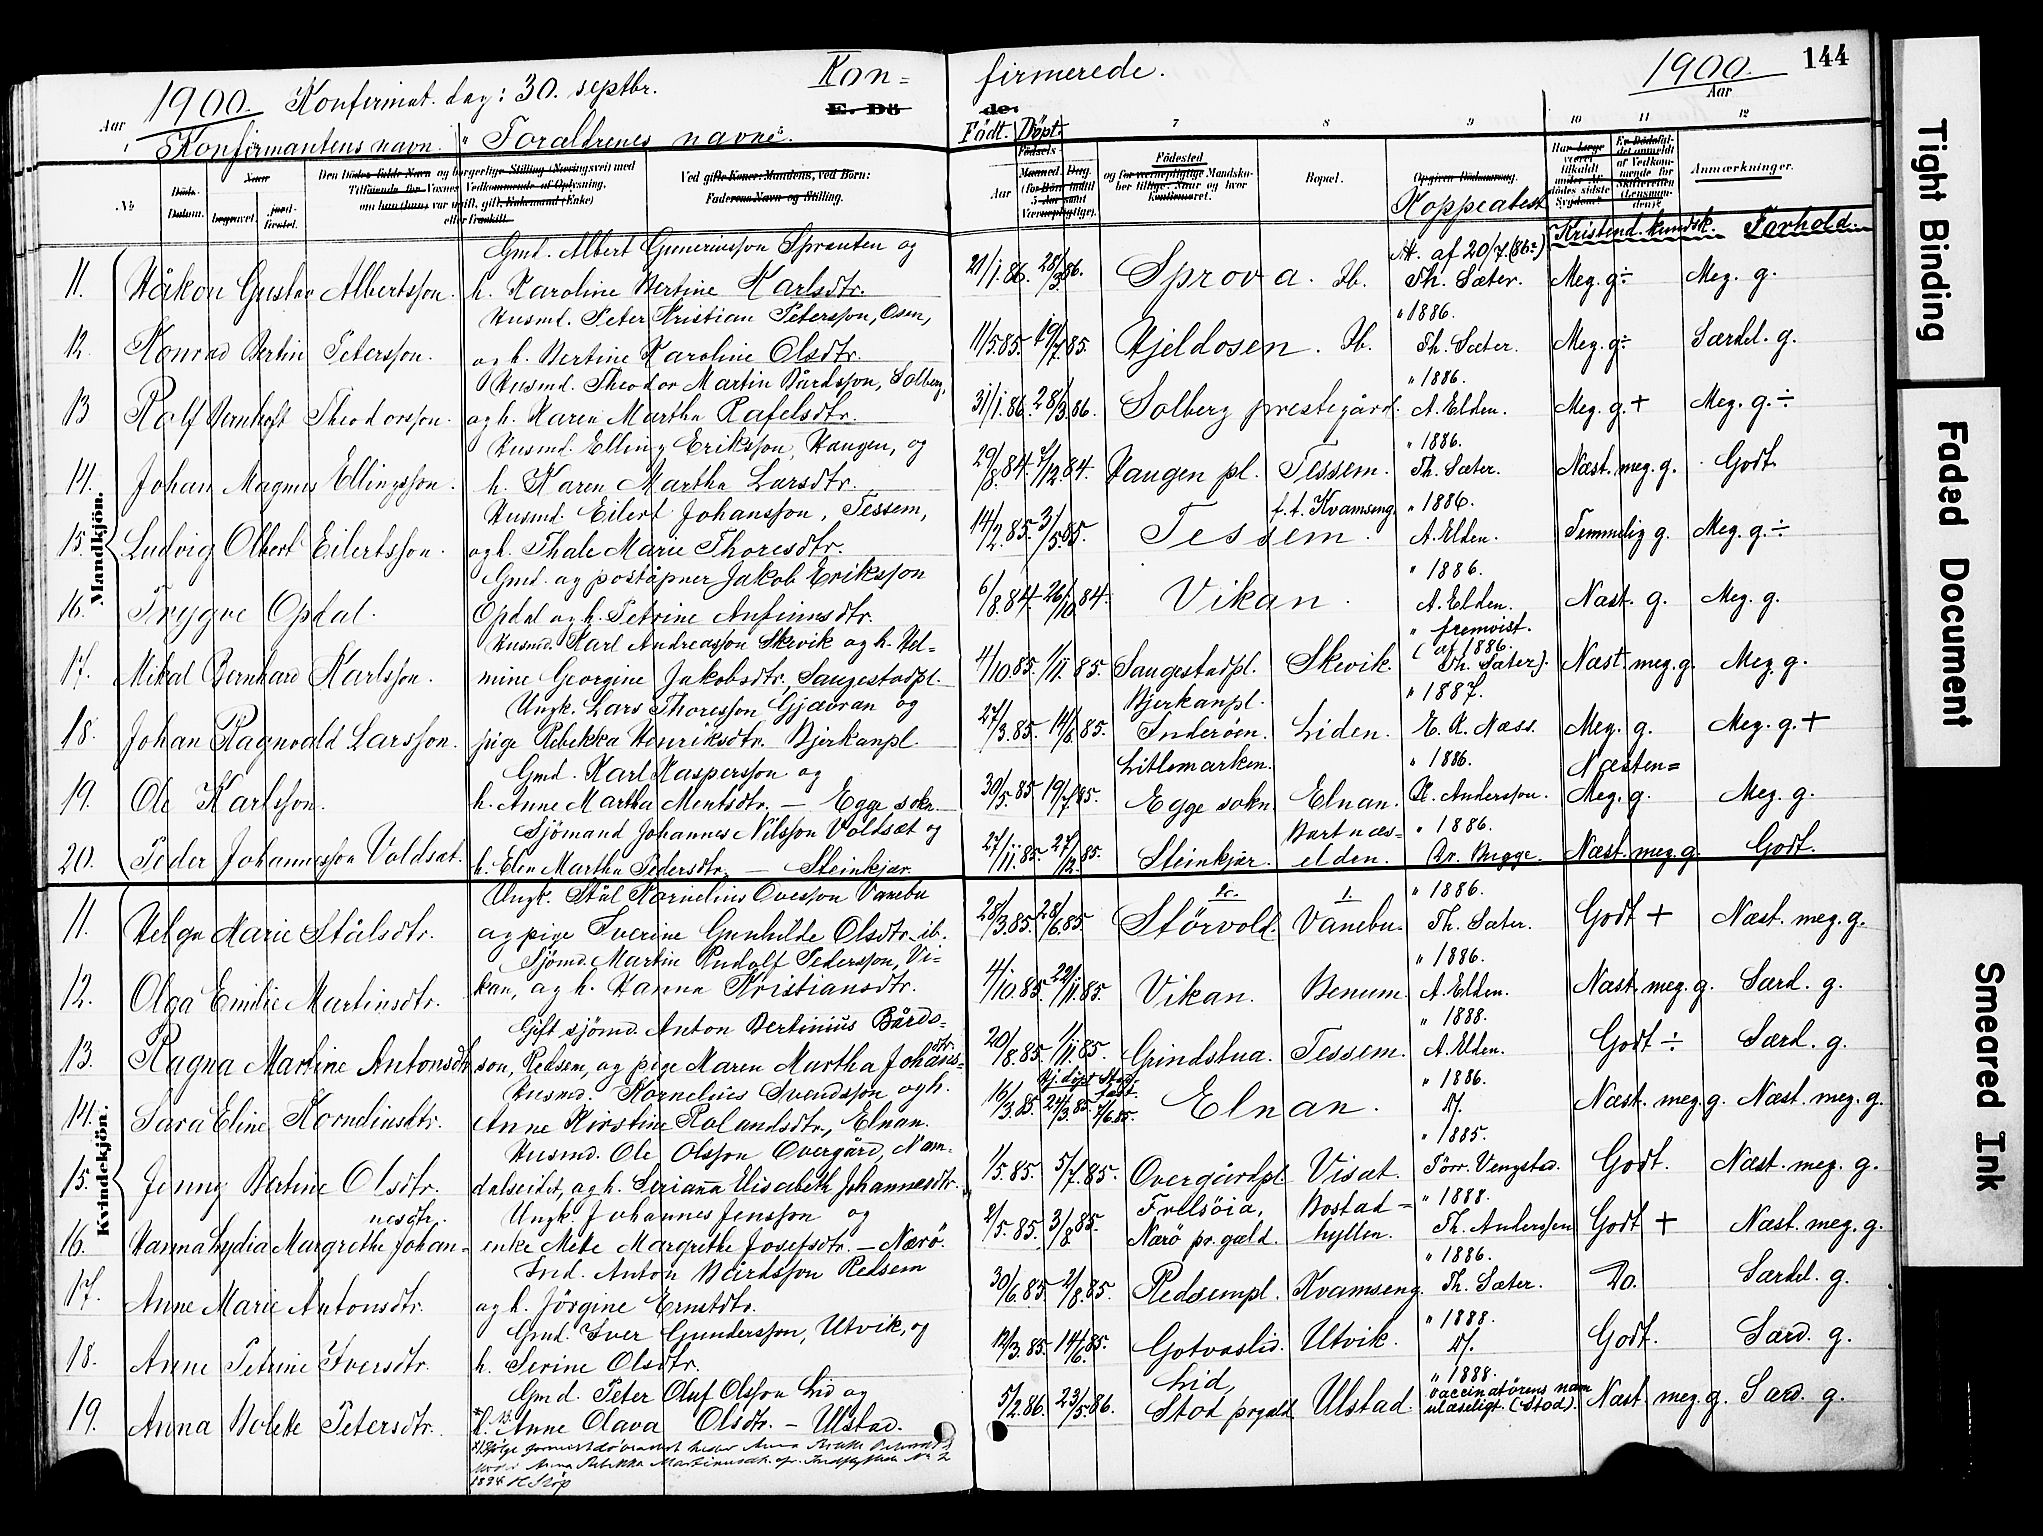 1900. Konfirmat. dag: 30. septbr. Kon= firmerede. 1900. 144
Aar E. Dö de: Aar
Konfirmantens navn. Foraldrenes navne. Födt. Döpt. 7 8 9 10 11 12
No. Döds- Datum. Naar begravet. jord- fæstet. Fødested Bopæl. Koppeatest Kristend. kundsk. Anmærkninger. Forhold.
Mandkjön.
Gmd. Albert Gunerinsson Sprauten og At. af 20/7 (86)
11. Håkon Gustav Albertsson. h. Karoline Bertine Karlsdtr. 21/1.86. 28/3.86. Sprova. Ib. Th. Sæter. Meg. g÷ Meg. g.
Husmd. Peter Kristian Petersson, Osen, " 1886.
12. Konrad Bertin Petersson. og h. Bertine Karoline Olsdtr. 11/5.85. 19/7.85. Hjeldosen. Ib. Th. Sæter. Meg. g÷ Særdel. g.
Husmd. Theodor Martin Bårdsson, Solberg, " 1886.
13 Rolf Bernhoft Theodorsson. og h. Karen Martha Rafelsdtr. 31/1.86. 28/3.86. Solberg prestegård. A. Elden. Meg. g. + Meg. g. ÷
Husmd. Elling Eriksson, Haugen, og " 1886.
14. Johan Magnus Ellingsson. h. Karen Martha Larsdtr. 29/8.84. 7/12.84. Haugen pl. Tessem. Th. Sæter. Næst. meg. g. Godt.
Husmd. Eilert Johansson, Tessem, f. t. Kvamseng. " 1886.
15. Ludvig Olbert Eilertsson. og h. Thale Marie Thoresdtr. 14/2.85. 3/5.85. Tessem. A. Elden. Temmelig g. Meg. g. ÷
Gmd. og poståpner Jakob Eriksson " 1886.
16. Trygve Opdal. Opdal og h. Petrine Anfinnsdtr. 6/8.84. 26/10.84. Vikan. A. Elden. Næst. g. Meg. g.
Husmd. Karl Andreasson Skevik og h. Hel= " fremvist.
(af 1886.
17. Mikal Bernhard Karlsson. mine Georgine Jakobsdtr. Saugestadpl. 4/10.85. 1/11.85. Saugestadpl. Skevik. Th. Sæter). Næst meg. g. Meg. g.
Ungk. Lars Thoresson Gjævran og Bjerkanpl. " 1887.
18. Johan Ragnvald Larsson. pige Rebekka Henriksdtr. Bjerkanpl. 27/3.85. 14/6.85. Inderöen. Liden. E. K. Næss. Meg. g. Meg. g. +
Gmd. Karl Kaspersson og Litlemarken. " 1886. Næsten=
19. Ole Karlsson. h. Anne Martha Mentsdtr. — Egge sokn. 30/5.85. 19/7.85. Egge sokn. Elnan. K. Andersson. Meg. g. Meg. g.
Sjömand Johannes Nilsson Voldsæt og Bartnæs- " 1886.
20. Peder Johannesson Voldsat. h. Elen Martha Pedersdtr. — Steinkjær. 27/11.85. 27/12.85. Steinkjær. elden. Dr. Bugge. Næst. meg. g. Godt.
Kvindekjön.
Ungk. Stål Kornelius Ovesson Vanebu " 1886.
11. Helga Marie Stålsdtr. og pige Iverine Gunhilde Olsdtr. ib. 28/3.85. 28/6.85. Störvold. Vanebu. Th. Sæter. Godt + Næst. meg. g.
Sjömd. Martin Rudolf Pedersson, Vi= " 1886.
12. Olga Emilie Martinsdtr. kan, og h. Hanna Kristiansdtr. 4/10.85. 22/11.85. Vikan. Benum. A. Elden. Næst. meg. g. Særd. g.
Gift sjömd. Anton Bertinius Bårds= " 1888.
13. Ragna Martine Antonsdtr. son, Redsem, og pige Maren Martha Johans= dtr. 20/8.85. 1/11.85. Grindstua. Tessem. A. Elden. Godt ÷ Særd. g.
Husmd. Kornelius Svendsson og h. Hj. döpt Stadf. " 1886.
14. Sara Eline Korneliusdtr. Anne Kirstine Rolandsdtr., Elnan. 16/3.85. 24/3.85. 7/6.85. Elnan. d/. Næst. meg. g. Næst. meg. g.
Husmd. Ole Olsson Overgård, Nam- " 1885.
15. Jenny Bertine Olsdtr. dalseidet, og h. Serianna Elisabeth Johannesdtr. 1/5.85. 5/7.85. Overgårdpl. Visat. Törr. Vengstad. Godt. Næst. meg. g.
nesdtr. Ungk. Johannes Jensson og Frelsöia, Bostad= " 1888.
16. Hanna Lydia Margrethe Johan- enke Mete Margrethe Josefsdtr. — Nærö. 2/5.85. 3/8.85. Nærö pr. gæld. hyllen. Th. Anderssen Godt + Næst. meg. g.
Ind. Anton Bårdsson Redsem " 1886.
17. Anne Marie Antonsdtr. og h. Jörgine Ernstdtr. 30/6.85. 2/8.85. Redsempl. Kvamseng. Th. Sæter. Do. Særdel. g.
Gmd. Iver Gundersson, Utvik, og " 1888.
18. Anne Petrine Iversdtr. h. Serine Olsdtr. 12/3.85. 14/6.85. Gotvaslid. Utvik. d/. Godt. Særd. g.
Gmd. Peter Oluf Olsson Lid og Lid, " 1888.
vaccinatörens navn
19. Anna Bolette Petersdtr. h. Anne Olava Olsdtr. — Ulstad. 5/2.86. 23/5.86. Stod prgæld. Ulstad. ulæseligt. (Stod). Næst. meg. g. Særd. g.
1894
Tight Binding
Faded Document
Smeared Ink